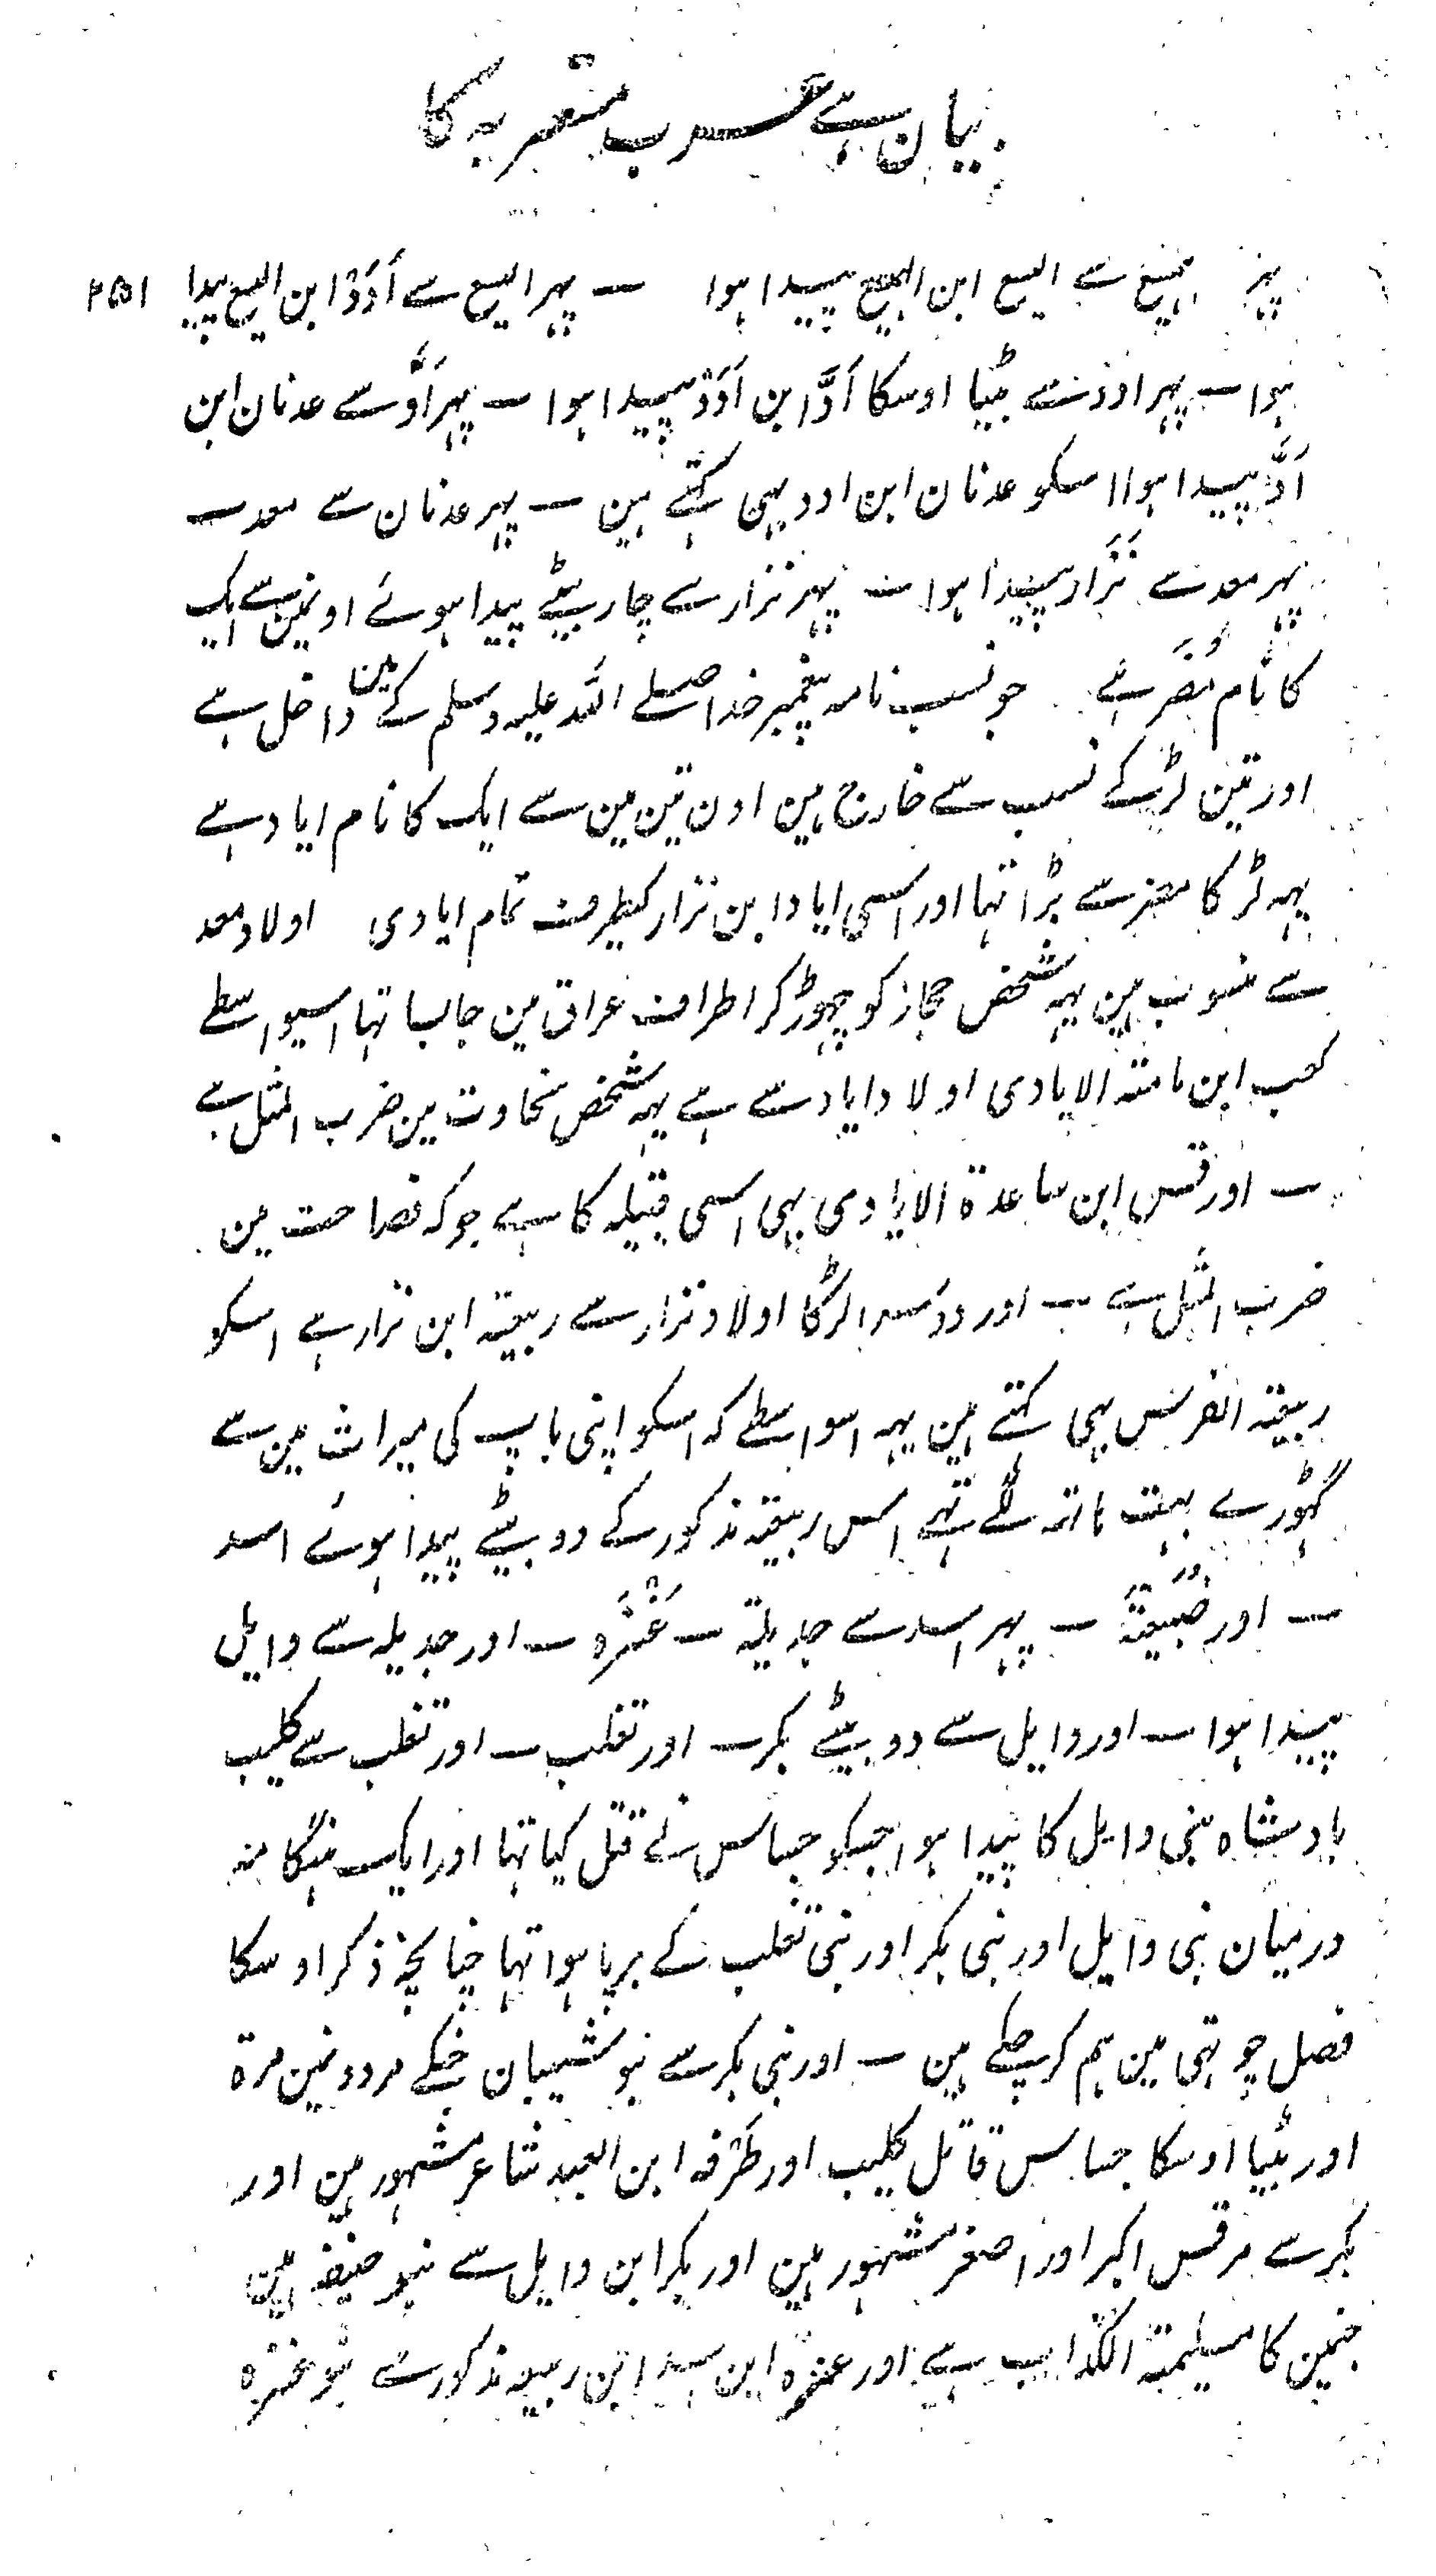 بیان ہے عرب متعربہ کا
پہر ہمیسع سے الیسع ابن الہمیسع پیدا ہوا ۔ پہر الیسع سے اَدَدْ ابن الیسع پیدا ۲۵۱
ہوا ۔ پہر اودد سے بیٹا اوسکا اَدَّ ابن اَدَدْ پیدا ہوا ۔ پہر اَدَّ سے عدنان ابن
اَدَّ پیدا ہوا اسکو عدنان ابن ادد بہی کہتے ہین ۔ پہر عدنان سے معد ۔
پہر معد سے نَزَار پیدا ہوا ۔ پہر نزار سے چار بیٹے پیدا ہوئے اونمین سے ایک
کا نام مُضَر ہے جو نسب نامہ پیغمبر خدا صلے اللہ علیہ وسلم کے مین داخل ہے
اور تین لڑکے نسب سے خارج ہین اون تین مین سے ایک کا نام ایاد ہے
یہہ لڑکا مضر سے بڑا تہا اور اسی ایاد ابن نزار کیطرف تمام ایادی اولاد معد
سے منسوب ہین یہہ شخص حجاز کو چہوڑ کر اطراف عراق مین جا بسا تہا اسیواسطے
کعب ابن مامتہ الایادی اولاد ایاد سے ہے یہہ شخص سخاوت مین ضرب المثل ہے
۔ اور قس ابن ساعدۃ الایادی بہی اسی قبیلہ کا ہے جو کہ فصاحت مین
ضرب المثل ہے ۔ اور دوسرا لڑکا اولاد نزار سے ربیعتہ ابن نزار ہے اسکو
ربیعتہ الفرس بہی کہتے ہین یہہ اسواسطے کہ اسکو اپنی باپ کی میراث مین سے
گہوڑے بہت ہاتہ لگے تہے اس ربیعتہ مذکور کے دو بیٹے پیدا ہوئے اسد
۔ اور ضُبَیعَتہ ۔ پہر اسد سے جدیلتہ ۔ عَنْزَہ ۔ اور جدیلہ سے وایل
پیدا ہوا ۔ اور وایل سے دو بیٹے بکر ۔ اور تغلب ۔ اور تغلب سے کلیب
بادشاہ بنی وایل کا پیدا ہوا جسکو جساس نے قتل کیا تہا اور ایک ہنگامہ
درمیان بنی وایل اور بنی بکر اور بنی تغلب کے برپا ہوا تہا چنانچہ ذکر اوسکا
فصل چوتہی مین ہم کر چکے ہین ۔ اور بنی بکر سے بنو شیبان جنکے مردونمین مرۃ
اور بیٹیا اوسکا جساس قاتل کلیب اور طَرفہ ابن العبد شاعر مشہور ہین اور
بکر سے مرقس اکبر اور اصغر مشہور ہین اور بکر ابن وایل سے بنو حنیفہ ہین
جنمین کا مسیلمتہ الکذاب ہے اور عنزہ ابن اسد ابن ربیعہ مذکور سے بنو عنزہ